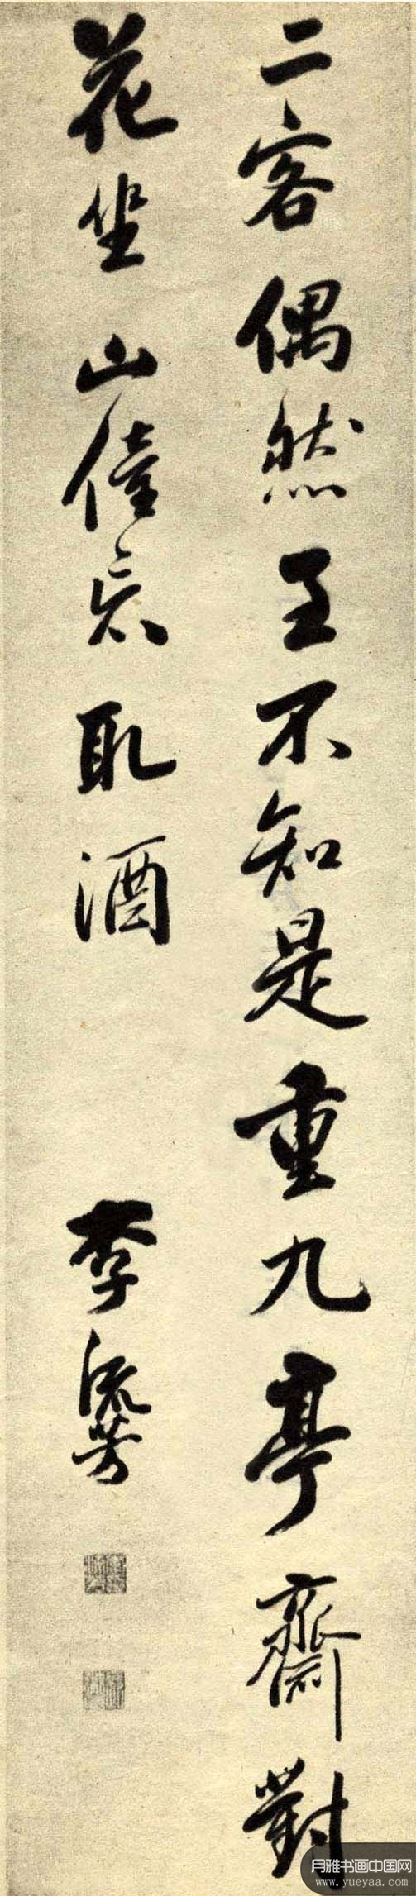 二客偶然至不知是重九亭齋對
花坐山僮忘取酒
李流芳
月雅书画中国网
www.yueyaa.com